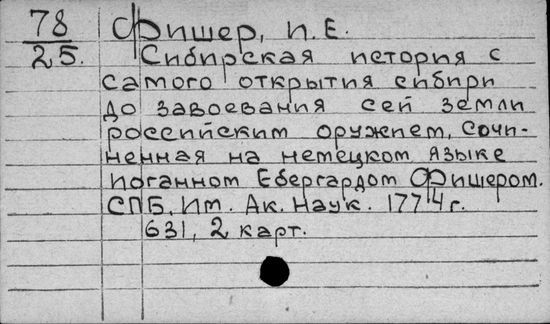 78
25.
Фишер, И.Е.
Сибирская история с
самого открытия сибири
до завоевания сей земли
российским оружием, сочи-
ненная на немецком языке
Иоганном Ебергардом Фишером.
СПБ, Им. Ак. Наук. 1774г.
631, 2 карт.